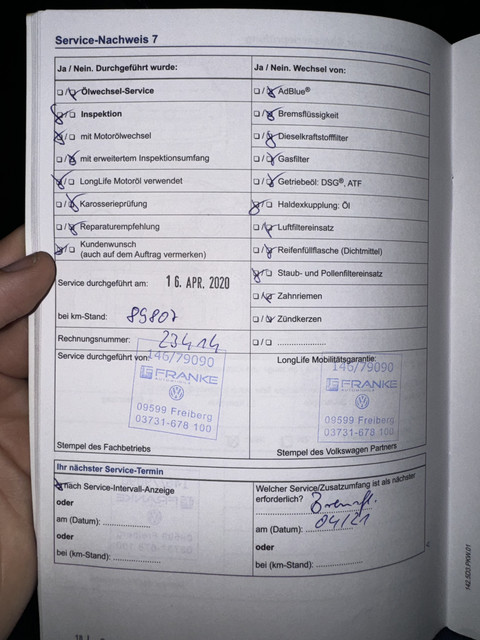 Service-Nachweis 7
Ja / Nein. Durchgeführt wurde:
Ölwechsel-Service
Inspektion
mit Motorölwechsel
mit erweitertem Inspektionsumfang
LongLife Motoröl verwendet
Karosserieprüfung
Reparaturempfehlung
Kundenwunsch
(auch auf dem Auftrag vermerken)
Service durchgeführt am: 16. APR. 2020
bei km-Stand: 89807
Rechnungsnummer: 23414
Service durchgeführt von:
146/79090
FRANKE
09599 Freiberg
03731-678 100
Stempel des Fachbetriebs
Ja / Nein. Wechsel von:
AdBlue®
Bremsflüssigkeit
Dieselkraftstofffilter
Gasfilter
Getriebeöl: DSG®, ATF
Haldexkupplung: Öl
Luftfiltereinsatz
Reifenfüllflasche (Dichtmittel)
Staub- und Pollenfiltereinsatz
Zahnriemen
Zündkerzen
LongLife Mobilitätsgarantie:
146/79090
FRANKE
09599 Freiberg
03731-678 100
Stempel des Volkswagen Partners
Ihr nächster Service-Termin
nach Service-Intervall-Anzeige
oder
am (Datum):
oder
bei (km-Stand):
Welcher Service/Zusatzumfang ist als nächster
erforderlich? Bremsfl.
am (Datum): 04/21
oder
bei (km-Stand):
142.5D3.PKW.01